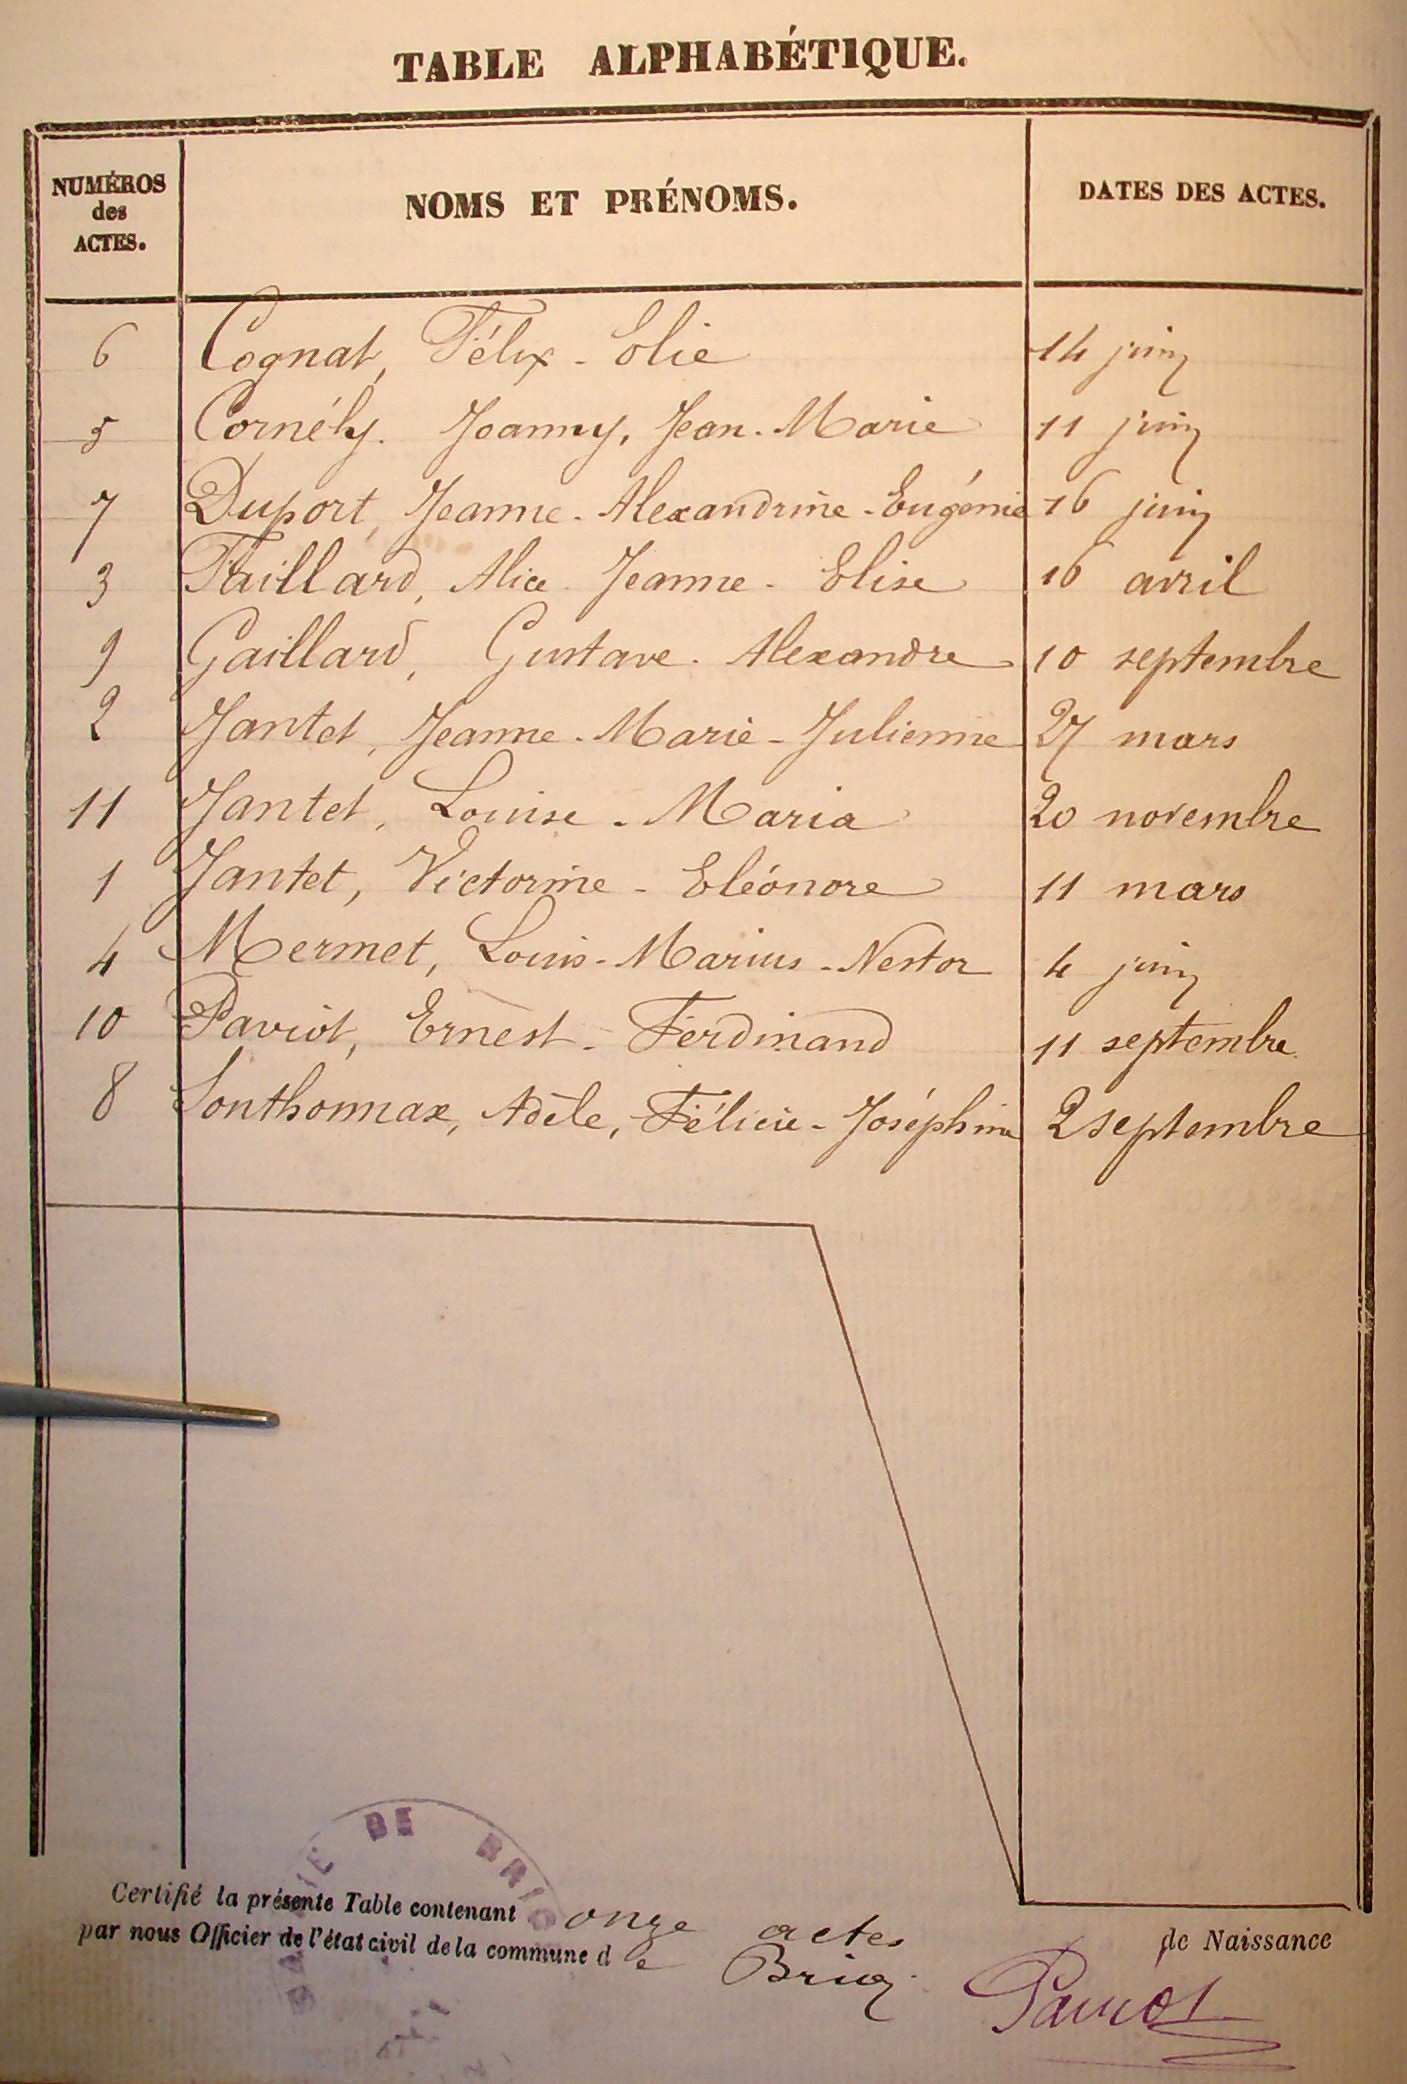 TABLE ALPHABÉTIQUE.
NUMÉROS
des
ACTES.
NOMS ET PRÉNOMS.
DATES DES ACTES.
6 Cognat, Félix - Elie 14 juin
5 Cornély. Joanny, Jean-Marie 11 juin
7 Duport, Jeanne-Alexandrine-Eugénie 16 juin
3 Faillard, Alice Jeanne-Elise 16 avril
9 Gaillard, Gustave-Alexandre 10 septembre
2 Jantet, Jeanne-Marie-Julienne 27 mars
11 Jantet, Louise-Maria 20 novembre
1 Jantet, Victorine-Eléonore 11 mars
4 Mermet, Louis-Marius-Nestor 4 juin
10 Paviot, Ernest-Ferdinand 11 septembre
8 Sonthonnax, Adèle, Félicie-Joséphine 2 septembre
DE
Certifié la présente Table contenant onze actes de Naissance
par nous Officier de l'état civil de la commune de
Paviot